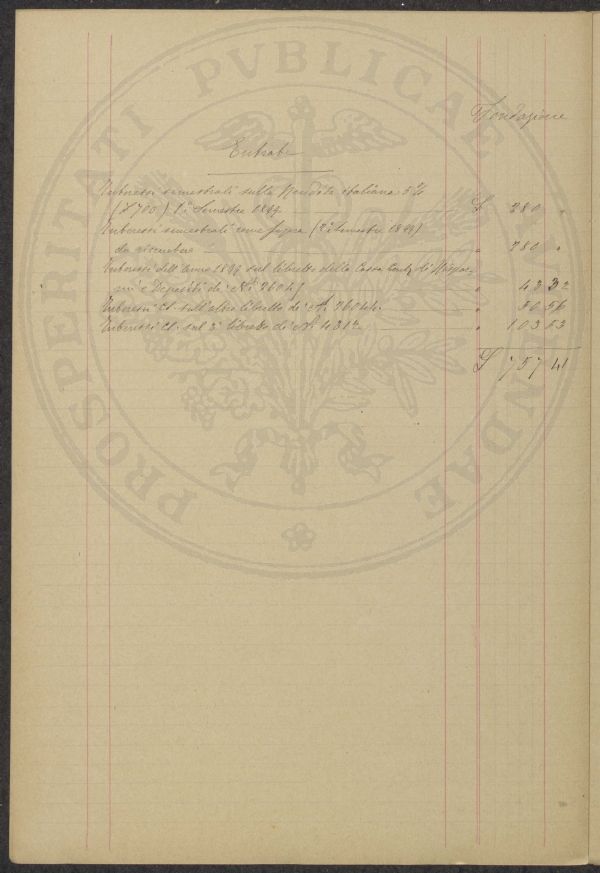 PROSPERITATI PVBLICAE AVGENDAE
Fondazione
Entrate
Interessi semestrali sulla Rendita italiana 5%
(£ 700) 1° Semestre 1899 £ 280 "
Interessi semestrali come sopra (2° Semestre 1899)
da riscuotere " 280 "
Interessi dell'anno 1899 sul libretto della Cassa Centr. di Rispar-
mi e Depositi di N° 26041 " 43 32
Interessi Cl. sull'altro libretto di N. 26044 " 50 56
Interessi Cl. sul 3° libretto di N° 4312 " 103 53
£ 757 41